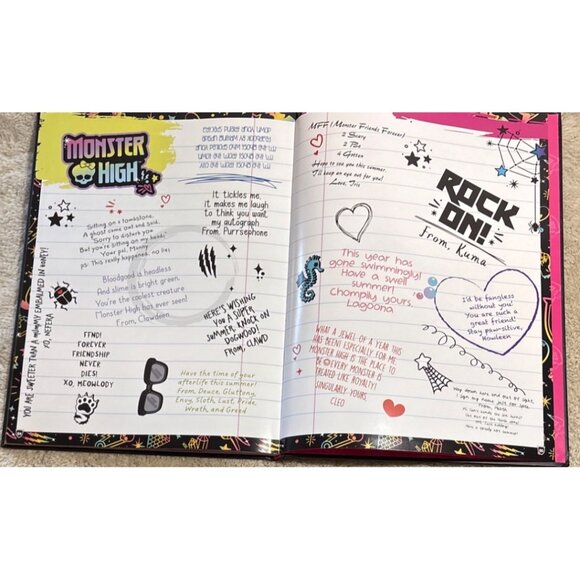 MONSTER
HIGH
Sitting on a tombstone,
A ghost came and said,
"Sorry to disturb you
But you're sitting on my head."
Your pal, Manny
(P.S. This really happened, no lie)
It tickles me,
it makes me laugh
to think you want
my autograph
From Purrsephone
Bloodgood is headless
And slime is bright green,
You're the coolest creature
Monster High has ever seen!
From, Clawdeen
HERE'S WISHING
YOU A SUPER
SUMMER, KNOCK ON
DOGWOOD!
FROM, CLAWD
YOU ARE SWEETER THAN A MUMMY EMBALMED IN HONEY!
XO, NEFERA
FFND!
FOREVER
FRIENDSHIP
NEVER
DIES!
XO, MEOWLODY
Have the time of your
afterlife this summer!
From, Deuce, Gluttony,
Envy, Sloth, Lust, Pride,
Wrath, and Greed
MFF (Monster Friends Forever)
2 Scary
2 Be
4 Gotten
Hope to see you this summer.
I'll keep an eye out for you!
Love, Iris
ROCK
ON!
From, Kuma
This year has
gone swimmingly!
Have a swell
summer!
Chompily yours,
Lagoona
I'd be fangless
without you!
You are such a
great friend!
Stay paw-sitive,
Howleen
WHAT A JEWEL OF A YEAR THIS
HAS BEEN! ESPECIALLY FOR ME.
MONSTER HIGH IS THE PLACE TO
BE EVERY MONSTER IS
TREATED LIKE ROYALTY!
SINGULARLY YOURS,
CLEO
Way down here and out of sight,
I sign my name just for spite.